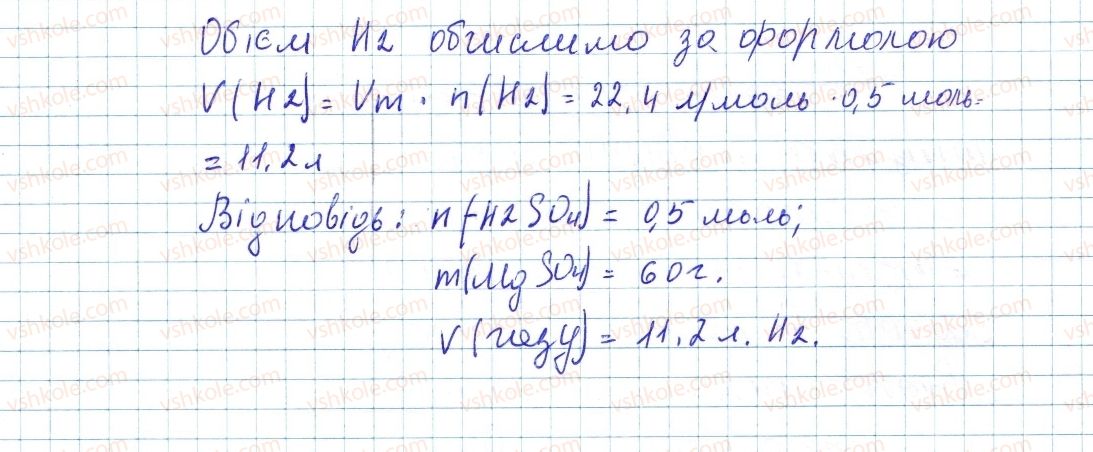 Обієм H2 обчислимо за формолою
V(H2) = Vm · n(H2) = 22,4 л/моль · 0,5 моль =
= 11,2 л
Відповідь: n(H2SO4) = 0,5 моль;
m(MgSO4) = 60г.
V(газу) = 11,2 л. H2.